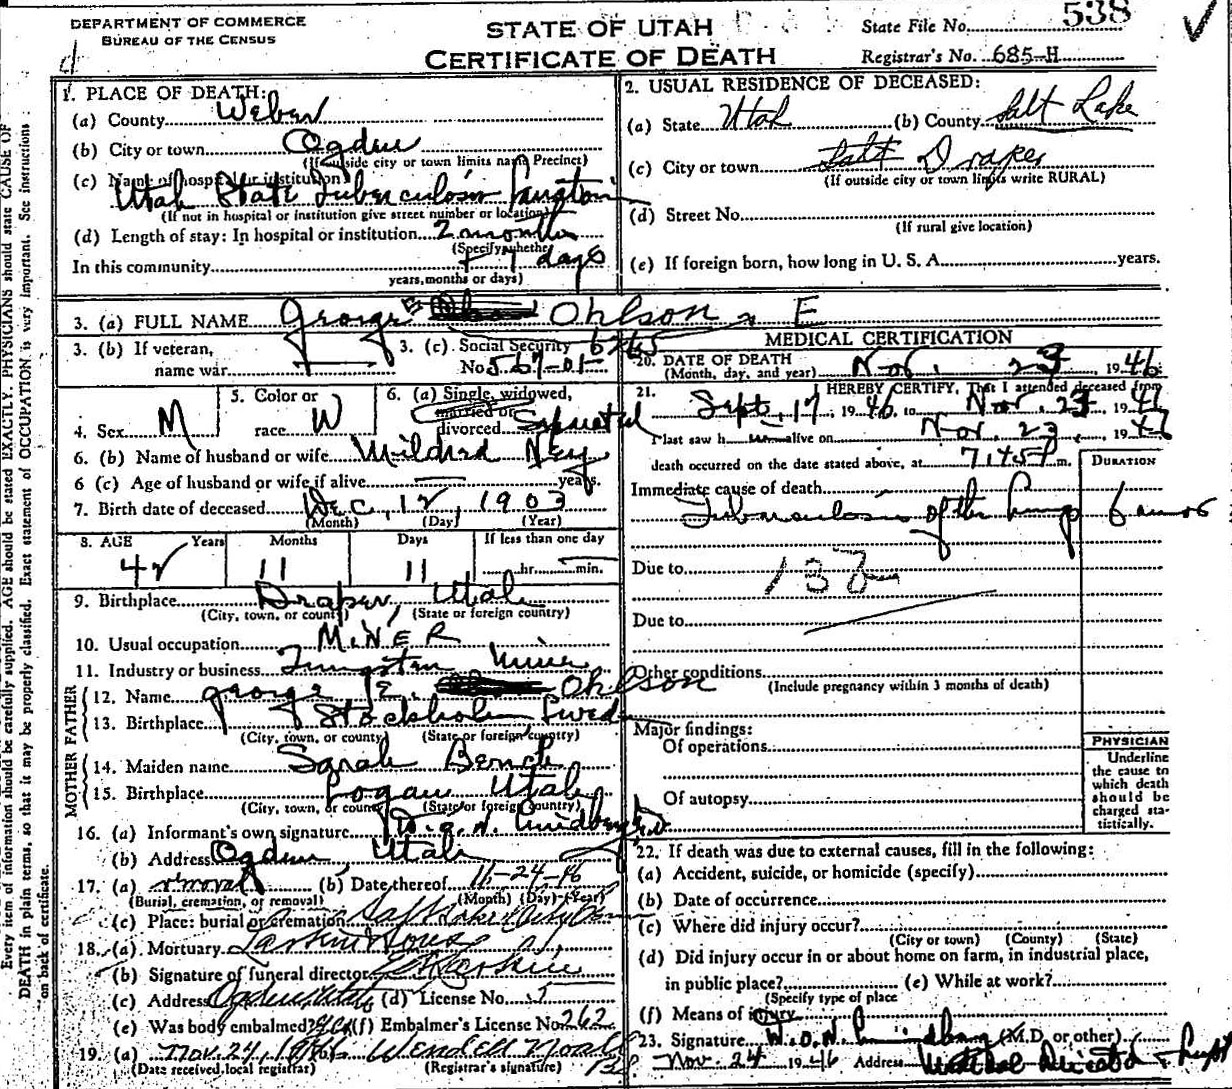 DEPARTMENT OF COMMERCE
BUREAU OF THE CENSUS
STATE OF UTAH
CERTIFICATE OF DEATH
State File No. 538
Registrar's No. 685-H
Every item of information should be carefully supplied. AGE should be stated EXACTLY. PHYSICIANS should state CAUSE OF
DEATH in plain terms, so that it may be properly classified. Exact statement of OCCUPATION is very important. See instructions
on back of certificate.
1. PLACE OF DEATH:
(a) County Weber
(b) City or town Ogden
(If outside city or town limits name Precinct)
(c) Name of hospital or institution
Utah State Tuberculosis
(If not in hospital or institution give street number or location)
(d) Length of stay: In hospital or institution 2 months
(Specify whether
In this community + 7 days
years, months or days)
2. USUAL RESIDENCE OF DECEASED:
(a) State Utah (b) County Salt Lake
(c) City or town Salt Draper
(If outside city or town limits write RURAL)
(d) Street No.
(If rural give location)
(e) If foreign born, how long in U. S. A. years.
3. (a) FULL NAME George E Ohlson E
3. (b) If veteran,
name war
3. (c) Social Security
No 567-01- 6265
4. Sex M
5. Color or
race W
6. (a) Single, widowed,
married or
divorced Separated
6. (b) Name of husband or wife Mildred Ney
6 (c) Age of husband or wife if alive years.
7. Birth date of deceased Dec, 12, 1903
(Month) (Day) (Year)
8. AGE Years Months Days If less than one day
42 11 11 hr. min.
9. Birthplace Draper, Utah
(City, town, or county) (State or foreign country)
10. Usual occupation MINER
11. Industry or business Tungsten Mine
FATHER
12. Name George E. Ohlson
13. Birthplace Stockholm Swed
(City, town, or county) (State or foreign country)
MOTHER
14. Maiden name Sarah Bench
15. Birthplace Logan Utah
(City, town, or county) (State or foreign country)
16. (a) Informant's own signature
(b) Address Ogden, Utah
17. (a) removal (b) Date thereof 11-24-46
(Burial, cremation, or removal) (Month) (Day) (Year)
(c) Place: burial or cremation Salt Lake
18. (a) Mortuary Larkin & Sons
(b) Signature of funeral director Larkin
(c) Address Ogden, Utah (d) License No.
(e) Was body embalmed? yes (f) Embalmer's License No. 262
19. (a) Nov. 24, 1946 Wendell
(Date received local registrar) (Registrar's signature)
MEDICAL CERTIFICATION
20. DATE OF DEATH
(Month, day, and year) Nov. 23 1946
21. I HEREBY CERTIFY, That I attended deceased from
Sept, 17, 1946, to Nov. 23, 19
I last saw h alive on Nov. 23, 19
death occurred on the date stated above, at 7:45 P m.
DURATION
Immediate cause of death
Tuberculosis of the lungs 6 mos
Due to 13
Due to
Other conditions
(Include pregnancy within 3 months of death)
Major findings:
Of operations
Of autopsy
PHYSICIAN
Underline
the cause to
which death
should be
charged sta-
tistically.
22. If death was due to external causes, fill in the following:
(a) Accident, suicide, or homicide (specify)
(b) Date of occurrence
(c) Where did injury occur?
(City or town) (County) (State)
(d) Did injury occur in or about home on farm, in industrial place,
in public place? (e) While at work?
(Specify type of place
(f) Means of injury
23. Signature (M.D. or other)
Nov. 24 1946 Address